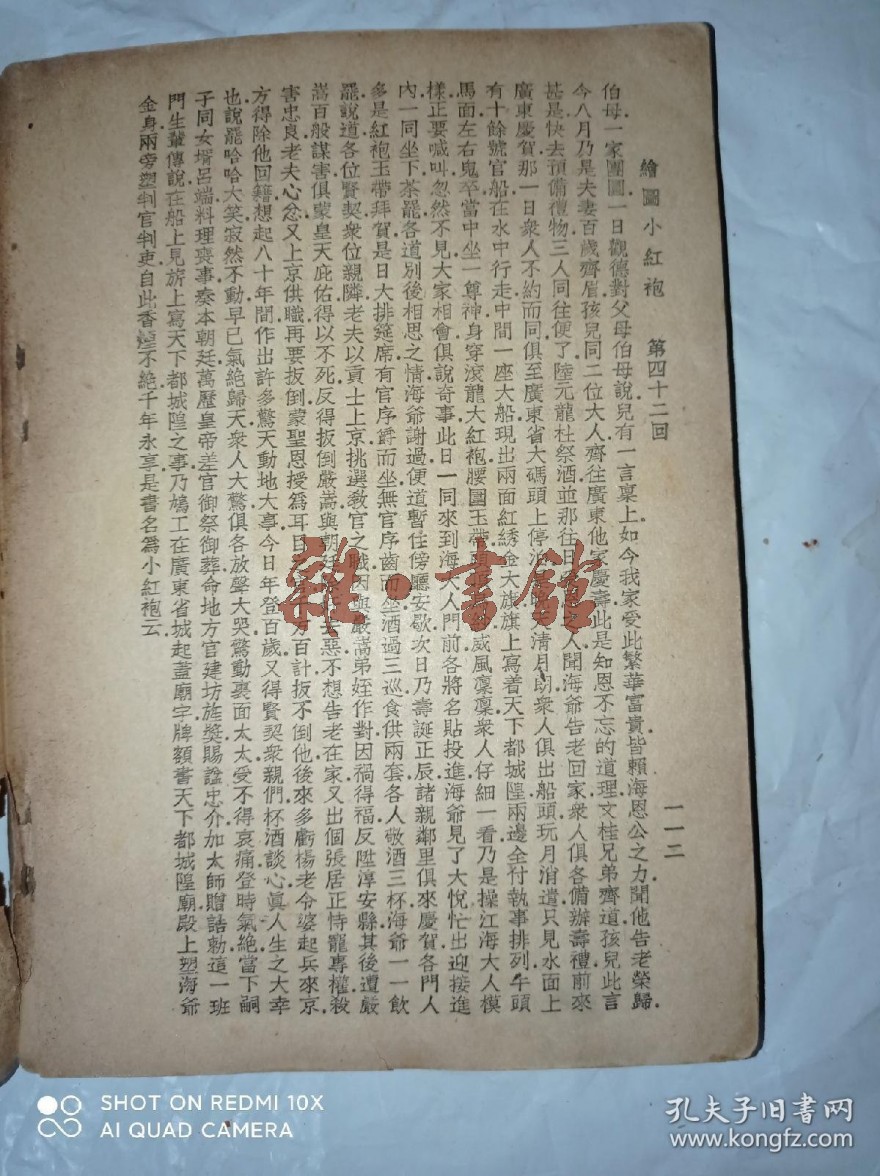 繪圖小紅袍 第四十二回 一一二
伯母一家團圓一日觀德對父母伯母說兒有一言稟上如今我家受此繁華富貴皆賴海恩公之力聞他告老榮歸
今八月乃是夫妻百歲齊眉孩兒同二位大人齊往廣東他家慶壽此是知恩不忘的道理文桂兄弟齊道孩兒此言
甚是快去預備禮物三人同往便了陸元龍杜祭酒並那往日之人聞海爺告老回家衆人俱各備辦壽禮前來
廣東慶賀那一日衆人不約而同俱至廣東省大碼頭上停泊清月朗衆人俱出船頭玩月消遣只見水面上
有十餘號官船在水中行走中間一座大船現出兩面紅綉金大旗旗上寫着天下都城隍兩邊全付執事排列牛頭
馬面左右鬼卒當中坐一尊神身穿滾龍大紅袍腰圍玉帶威風凜凜衆人仔細一看乃是操江海大人模
樣正要喊叫忽然不見大家相會俱說奇事此日一同來到海大人門前各將名貼投進海爺見了大悅忙出迎接進
內一同坐下茶罷各道別後相思之情海爺謝過便道暫住傍廳安歇次日乃壽誕正辰諸親鄰里俱來慶賀各門人
多是紅袍玉帶拜賀是日大排筵席有官序爵而坐無官序齒而坐酒過三巡食供兩套各人敬酒三杯海爺一一飲
罷說道各位賢契衆位親隣老夫以貢士上京挑選敎官之職因與嚴嵩弟姪作對因禍得福反陞淳安縣其後遭嚴
嵩百般謀害俱蒙皇天庇佑得以不死反得扳倒嚴嵩與朝廷惡不想告老在家又出個張居正恃寵專權殺
害忠良老夫心忿又上京供職再要扳倒蒙聖恩授爲耳目方百計扳不倒他後來多虧楊老令婆起兵來京
方得除他回籍想起八十年間作出許多驚天動地大事今日年登百歲又得賢契衆親們杯酒談心眞人生之大幸
也說罷哈哈大笑寂然不動早已氣絶歸天衆人大驚俱各放聲大哭驚動裏面太太受不得哀痛登時氣絶當下嗣
子同女壻呂端料理喪事奏本朝廷萬歷皇帝差官御祭御葬命地方官建坊旌獎賜諡忠介加太師贈誥勅這一班
門生輩傳說在船上見旂上寫天下都城隍之事乃鳩工在廣東省城起蓋廟宇牌額書天下都城隍廟殿上塑海爺
金身兩旁塑判官判吏自此香煙不絶千年永享是書名爲小紅袍云
雜·書館
SHOT ON REDMI 10X
AI QUAD CAMERA
孔夫子旧书网
www.kongfz.com